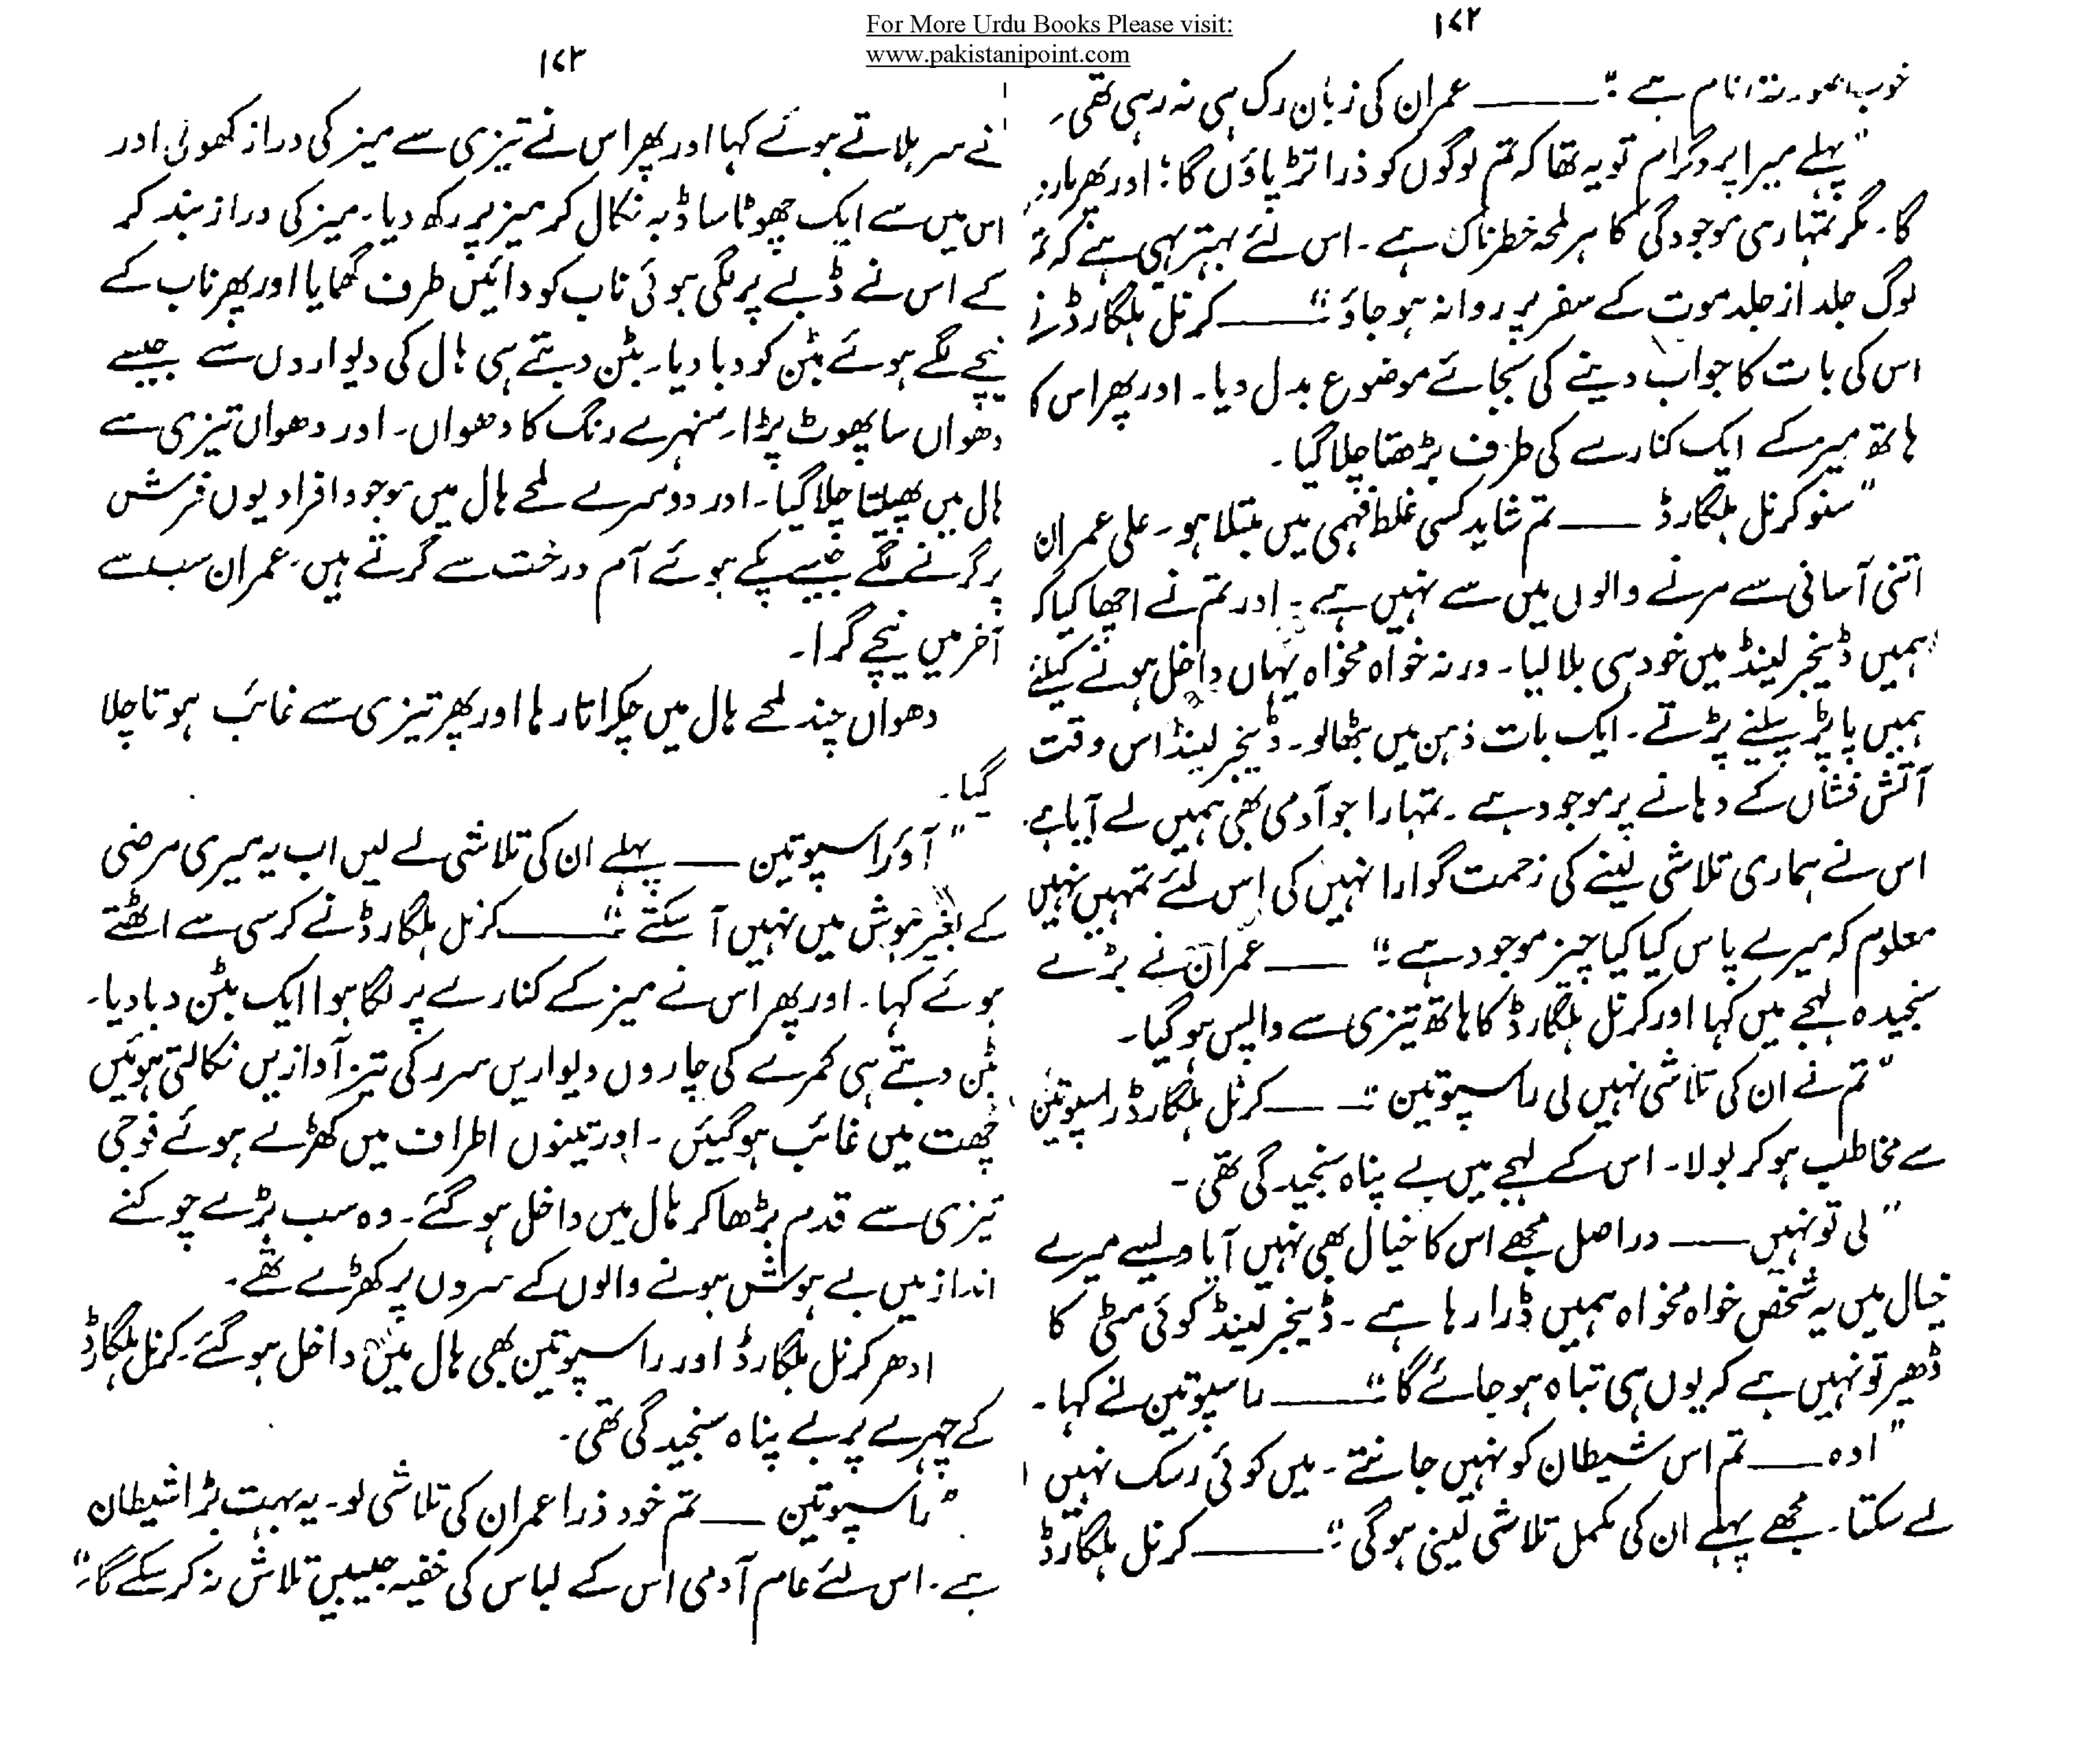 For More Urdu Books Please visit:
www.pakistanipoint.com
۱۷۲
خوبصورت نام ہے:" ——— عمران کی زبان رک ہی نہ رہی تھی۔
"پہلے میرا پروگرام تو یہ تھا کہ تم لوگوں کو ذرا تڑپاؤں گا؛ اور پھر ماروں
گا۔ مگر تمہاری موجودگی کا ہر لمحہ خطرناک ہے۔ اس لئے بہتر یہی ہے کہ تم
لوگ جلد از جلد موت کے سفر پر روانہ ہو جاؤ:" ——— کرنل بلگارڈ نے
اس کی بات کا جواب دینے کی بجائے موضوع بدل دیا۔ اور پھر اس کا
ہاتھ میز کے ایک کنارے کی طرف بڑھتا چلا گیا۔
"سنو کرنل بلگارڈ ——— تم شاید کسی غلط فہمی میں مبتلا ہو۔ علی عمران
اتنی آسانی سے مرنے والوں میں سے نہیں ہے۔ اور تم نے اچھا کیا کہ
ہمیں ڈینجر لینڈ میں خود ہی بلا لیا۔ ورنہ خواہ مخواہ یہاں داخل ہونے کیلئے
ہمیں پاپڑ بیلنے پڑتے۔ ایک بات ذہن میں بٹھا لو۔ ڈینجر لینڈ اس وقت
آتش فشاں کے دہانے پر موجود ہے۔ تمہارا جو آدمی بھی ہمیں لے آیا ہے۔
اس نے ہماری تلاشی لینے کی زحمت گوارا نہیں کی اس لئے تمہیں نہیں
معلوم کہ میرے پاس کیا کیا چیز موجود ہے:" ——— عمران نے بڑے
سنجیدہ لہجے میں کہا اور کرنل بلگارڈ کا ہاتھ تیزی سے واپس ہو گیا۔
"تم نے ان کی تلاشی نہیں لی راسپوتین:" ——— کرنل بلگارڈ راسپوتین
سے مخاطب ہو کر بولا۔ اس کے لہجے میں بے پناہ سنجیدگی تھی۔
"لی تو نہیں ——— دراصل مجھے اس کا خیال بھی نہیں آیا ویسے میرے
خیال میں یہ شخص خواہ مخواہ ہمیں ڈرا رہا ہے۔ ڈینجر لینڈ کوئی مٹی کا
ڈھیر تو نہیں ہے کہ یوں ہی تباہ ہو جائے گا:" ——— راسپوتین نے کہا۔
"اوہ ——— تم اس شیطان کو نہیں جانتے۔ میں کوئی رسک نہیں
لے سکتا۔ مجھے پہلے ان کی مکمل تلاشی لینی ہو گی:" ——— کرنل بلگارڈ
۱۷۳
نے سر ہلاتے ہوئے کہا اور پھر اس نے تیزی سے میز کی دراز کھولی اور
اس میں سے ایک چھوٹا سا ڈبہ نکال کر میز پر رکھ دیا۔ میز کی دراز بند کر
کے اس نے ڈبے پر لگی ہوئی ناب کو دائیں طرف گھمایا اور پھر ناب کے
نیچے لگے ہوئے بٹن کو دبا دیا۔ بٹن دبتے ہی ہال کی دیواروں سے جیسے
دھواں سا پھوٹ پڑا۔ سنہرے رنگ کا دھواں۔ اور دھواں تیزی سے
ہال میں پھیلتا چلا گیا۔ اور دوسرے لمحے ہال میں موجود افراد یوں فرش
پر گرنے لگے جیسے پکے ہوئے آم درخت سے گرتے ہیں۔ عمران سب سے
آخر میں نیچے گرا۔
دھواں چند لمحے ہال میں چکراتا رہا اور پھر تیزی سے غائب ہوتا چلا
گیا۔
"آؤ راسپوتین ——— پہلے ان کی تلاشی لے لیں اب یہ میری مرضی
کے بغیر ہوش میں نہیں آ سکتے:" ——— کرنل بلگارڈ نے کرسی سے اٹھتے
ہوئے کہا۔ اور پھر اس نے میز کے کنارے پر لگا ہوا ایک بٹن دبا دیا۔
بٹن دبتے ہی کمرے کی چاروں دیواریں سرر کی تیز آوازیں نکالتی ہوئیں
چھت میں غائب ہو گئیں۔ اور تینوں اطراف میں کھڑے ہوئے فوجی
تیزی سے قدم بڑھا کر ہال میں داخل ہو گئے۔ وہ سب بڑے چوکنے
انداز میں بے ہوش ہونے والوں کے سروں پر کھڑے تھے۔
ادھر کرنل بلگارڈ اور راسپوتین بھی ہال میں داخل ہو گئے۔ کرنل بلگارڈ
کے چہرے پر بے پناہ سنجیدگی تھی۔
"راسپوتین ——— تم خود ذرا عمران کی تلاشی لو۔ یہ بہت بڑا شیطان
ہے۔ اس لئے عام آدمی اس کے لباس کی خفیہ جیبیں تلاش نہ کر سکے گا:"